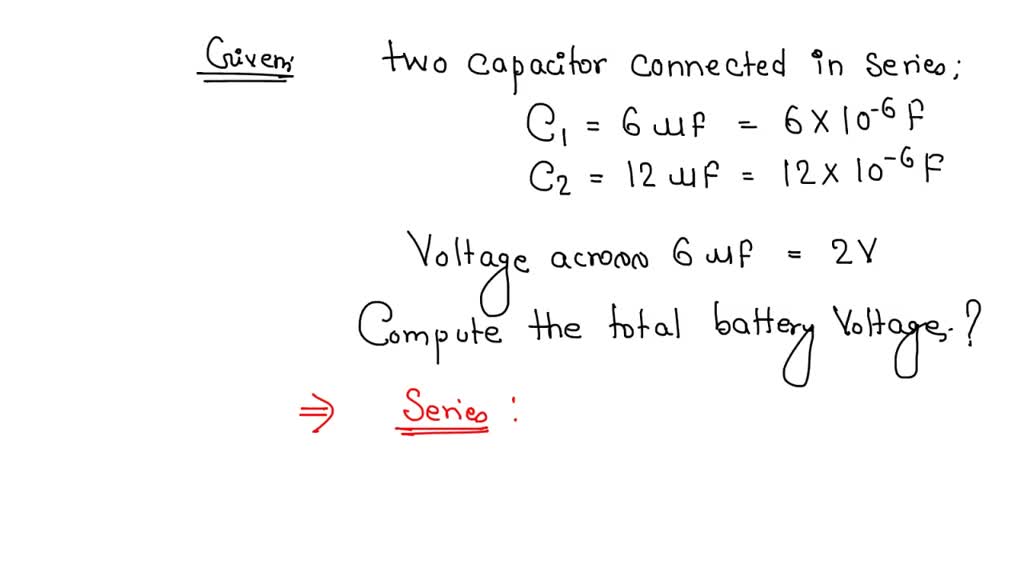 Given: two capacitor connected in series;
C₁ = 6 μf = 6 × 10⁻⁶ F
C₂ = 12 μf = 12 × 10⁻⁶ F
Voltage across 6 μf = 2V
Compute the total battery voltages.?
⇒ Series :